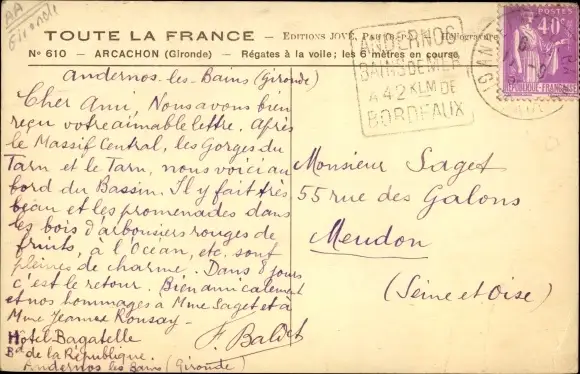 AA
Gironde
TOUTE LA FRANCE - EDITIONS JOVÉ, PAU (B.-P.) Héliogravure
No 610 - ARCACHON (Gironde) - Régates à la voile; les 6 mètres en course
ANDERNOS
BAINS DE MER
A 42 KLM DE
BORDEAUX
POSTES
40c
RÉPUBLIQUE FRANÇAISE
Andernos-les-Bains (Gironde)
Cher Ami, Nous avons bien
reçu votre aimable lettre. Après
le Massif Central, les Gorges du
Tarn et le Tarn, nous voici au
bord du Bassin. Il y fait très
beau et les promenades dans
les bois d'arbousiers rouges de
fruits, à l'Océan, etc. sont
pleines de charme. Dans 8 jours
c'est le retour. Bien amicalement
et nos hommages à Mme Saget et à
Mme Jeanne Ronsay -
F. Baldet
Hôtel Bagatelle
Bd de la République.
Andernos les Bains (Gironde)
Monsieur Saget
55 rue des Galons
Meudon
(Seine et Oise)